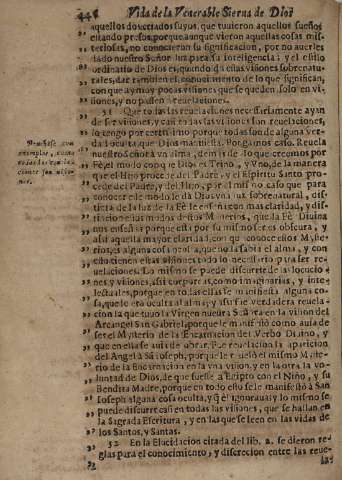 446 Vida de la Venerable Sierva de Dios
aquellos dos criados suyos, que tuvieron aquellos sueños
estando presos, porque aunque vieron aquellas cosas mis-
teriosas, no conocieron su significacion, por no averles
dado nuestro Señor luz para su inteligencia; y el estilo
ordinario de Dios es, quando dá estas visiones sobrenatu-
rales, dar tambien el conocimiento de lo que significan,
con que ay muy pocas visiones que se queden solo en vi-
siones, y no passen à revelaciones.
51 Que todas las revelaciones necessariamente ayan
de ser visiones, y casi todas las visiones son revelaciones,
lo tengo por certissimo porque todas son de alguna ver-
dad oculta, que Dios manifiesta. Pongamos caso. Revela
nuestro Señor à vn alma, demàs de lo que creemos por
Fè, el modo como es Dios Trino, y Vno, de la manera
que el Hijo procede del Padre, y el Espiritu Santo pro-
cede del Padre, y del Hijo, por el mismo caso que para
conocer este modo le dà Dios vna luz sobrenatural, dis-
tincta de la luz de la Fè
los modos destos Misterios, que la Fè Divina
nos enseña; porque esta por su mismo ser es obscura, y
assi aquella mayor claridad, con que conoce estos Myste-
rios, es alguna cosa oculta, que no la sabia el alma, y con
esto tienen estas visiones todo lo necessario para ser re-
velaciones. Lo mismo se puede discurrir de las locucio-
nes, y visiones, assi corporales, como imaginarias, y inte-
lectuales, porque en todas ellas se manifiesta alguna co-
sa, que le era oculta al alma; y assi fue verdadera revela-
cion la que tuvo la Virgen nuestra Señora en la vision del
Arcangel San Gabriel, porque le manifestò como avia de
ser el Mysterio de la Encarnacion del Verbo Divino, y
que en ella se avia de obrar. Fue revelacion la aparicion
del Angel à S. Joseph, porque le revelò el mismo Myste-
rio de la Encarnacion en la vna vision, y en la otra la vo-
luntad de Dios, de que fuesse à Egipto con el Niño, y su
Bendita Madre, porque en todo esto se le manifestò à San
Joseph alguna cosa oculta, que el ignorava; y lo mismo se
puede discurrir casi en todas las visiones, que se hallan en
la Sagrada Escritura, y en las que se leen en las vidas de
los Santos, y Santas.
52 En la Elucidacion citada del lib. 2. se dieron re-
glas para el conocimiento, y discrecion entre las reve-
la-
Pruebase con
exemplos, como